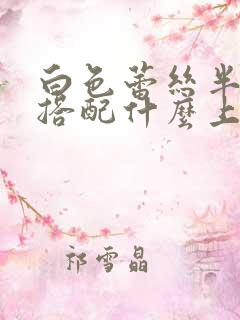 白色蕾丝半
搭配什麼上
祁雪晶